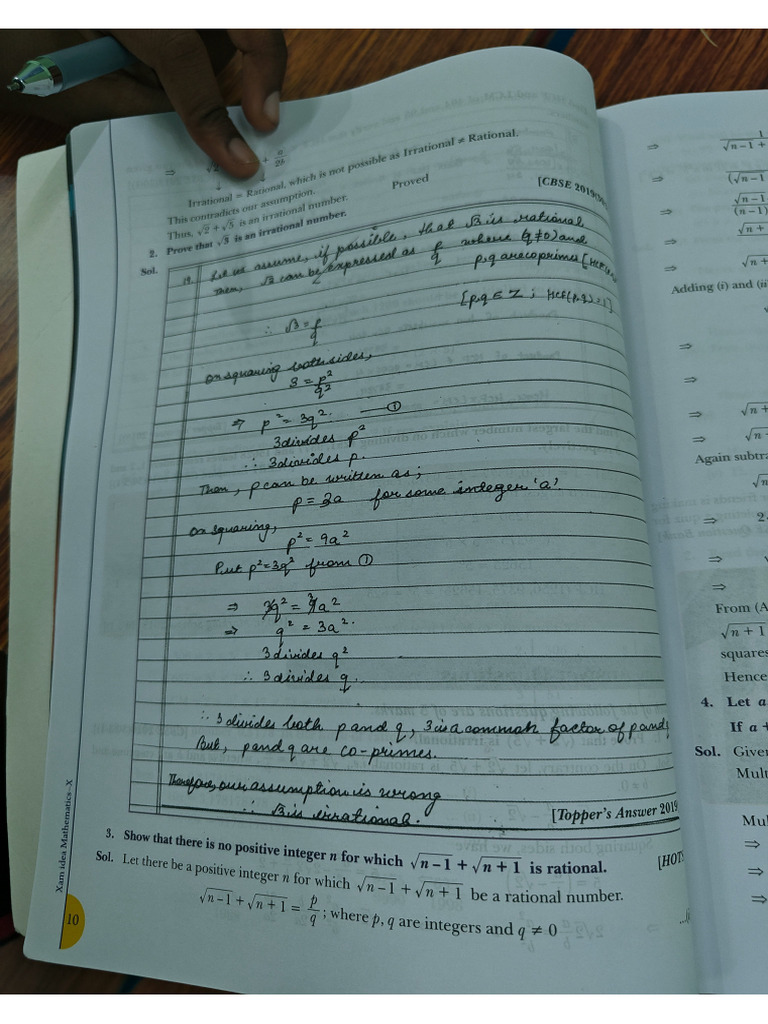 ⇒ √2 + a/2b
↓ ↓
Irrational = Rational, which is not possible as Irrational ≠ Rational.
This contradicts our assumption.
Thus, √2 + √5 is an irrational number. Proved
2. Prove that √3 is an irrational number. [CBSE 2019
Sol.
19. Let us assume, if possible, that √3 is rational
Then, √3 can be expressed as p/q where (q≠0) and
p,q are coprimes [HCF
[p,q ∈ Z ; HCF(p,q)=1]
∴ √3 = p/q
On squaring both sides,
3 = p²/q²
⇒ p² = 3q². ——①
3 divides p²
∴ 3 divides p.
Then, p can be written as;
p = 3a for some integer 'a'.
On squaring,
p² = 9a²
Put p²=3q² from ①
⇒ 3q² = 9a²
⇒ q² = 3a².
3 divides q²
∴ 3 divides q.
∴ 3 divides both p and q, 3 is a common factor of p and
But, p and q are co-primes.
Therefore, our assumption is wrong
∴ √3 is irrational.
[Topper's Answer 2019
3. Show that there is no positive integer n for which √n–1 + √n+1 is rational. [HOTS
Sol. Let there be a positive integer n for which √n–1 + √n+1 be a rational number.
√n–1 + √n+1 = p/q ; where p, q are integers and q ≠ 0
Xam idea Mathematics–X
10
⇒ √n–1 +
⇒ (√n–1
⇒ √n–1
(n–1)
⇒ √n+
⇒ √n+
Adding (i) and (ii
⇒
⇒
⇒ √n+
⇒ √n–
Again subtra
√n
⇒ 2
⇒
⇒
From (A
√n+1
squares
Hence
4. Let a
If a +
Sol. Given
Mult
Mul
⇒
⇒
⇒